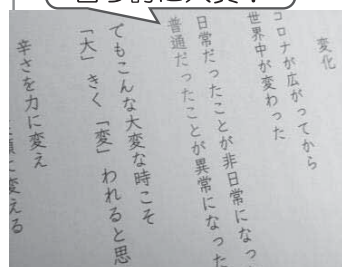 変化
コロナが広がってから
世界中が変わった
日常だったことが非日常になっ
普通だったことが異常になった
でもこんな大変な時こそ
「大」きく「変」われると思
辛さを力に変え
に変える